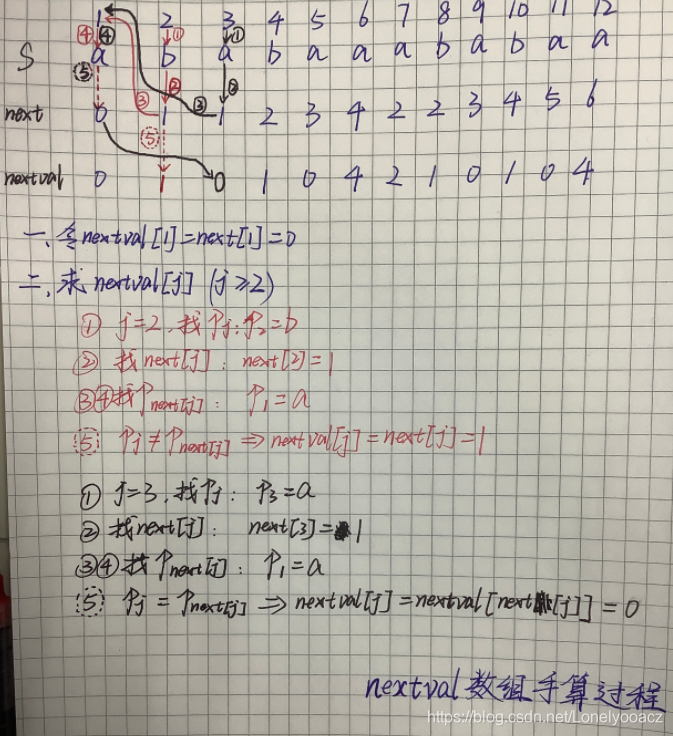 1 2 3 4 5 6 7 8 9 10 11 12
④ ④ ① ①
S a b a b a a a b a b a a
⑤ ② ③ ③ ②
next 0 1 1 2 3 4 2 2 3 4 5 6
⑤
nextval 0 1 0 1 0 4 2 1 0 1 0 4
一、令nextval[1]=next[1]=0
二、求nextval[j] (j≥2)
① j=2,找Pj:P2=b
② 找next[j]: next[2]=1
③④找Pnext[j]: P1=a
⑤ Pj≠Pnext[j] ⇒ nextval[j]=next[j]=1
① j=3,找Pj: P3=a
② 找next[j]: next[3]=1
③④找Pnext[j]: P1=a
⑤ Pj=Pnext[j] ⇒ nextval[j]=nextval[next[j]]=0
nextval数组手算过程
https://blog.csdn.net/Lonelyooacz